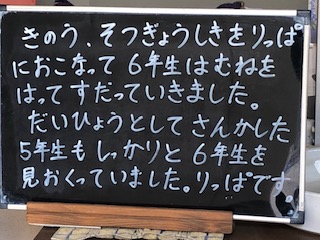 きのう、そつぎょうしきをりっぱ
におこなって6年生はむねを
はってすだっていきました。
だいひょうとしてさんかした
5年生もしっかりと6年生を
見おくっていました。りっぱです